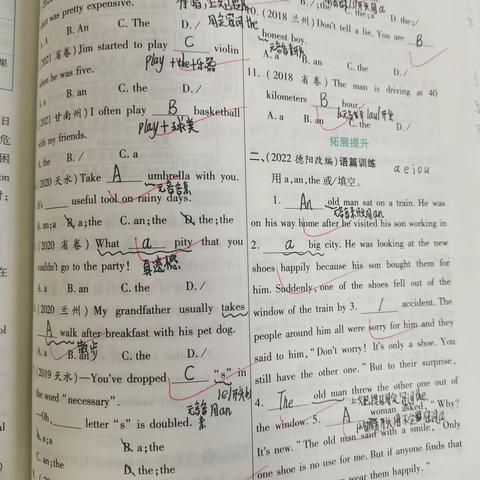 was pretty expensive.
A. A B. An C. The D. /
2021 省卷) Jim started to play C violin
when he was five. play + the + 乐器
A. a B. an C. the D. /
(2021 甘南州) I often play B basketball
with my friends. play + 球类
B. / C. a
2020 天水) Take A umbrella with you.
It's useful tool on rainy days.
A. an; a B. a; the C. an; the D. the; the
(2020 省卷) What a pity that you
couldn't go to the party! 真遗憾
A. a B. an C. the D. /
(2020 兰州) My grandfather usually takes
A walk after breakfast with his pet dog.
A. a B. 散步 C. the D. /
(2019 天水) —You've dropped C "s" in
the word "necessary".
—Oh, letter "s" is doubled.
A. a; a B. a; the
C. an; the D. the; the
(2018 兰州) Don't tell a lie. You are B
honest boy.
A. a C. the D. /
11. (2018 省卷) The man is driving at 40
kilometers B hour.
A. a B. an C. the D. /
拓展提升
二、(2022 德阳改编) 语篇训练 a e i o u
用 a, an, the 或/填空。
1. An old man sat on a train. He was
on his way home after he visited his son working in
2. a big city. He was looking at the new
shoes happily because his son bought them for
him. Suddenly, one of the shoes fell out of the
window of the train by 3. / accident. The
people around him all were sorry for him and they
said to him, "Don't worry! It's only a shoe. You
still have the other one." But to their surprise,
4. The old man threw the other one out of
the window. 5. A woman asked, "Why?
It's new." The old man said with a smile, "Only
one shoe is no use for me. But if anyone finds that
wear them happily."